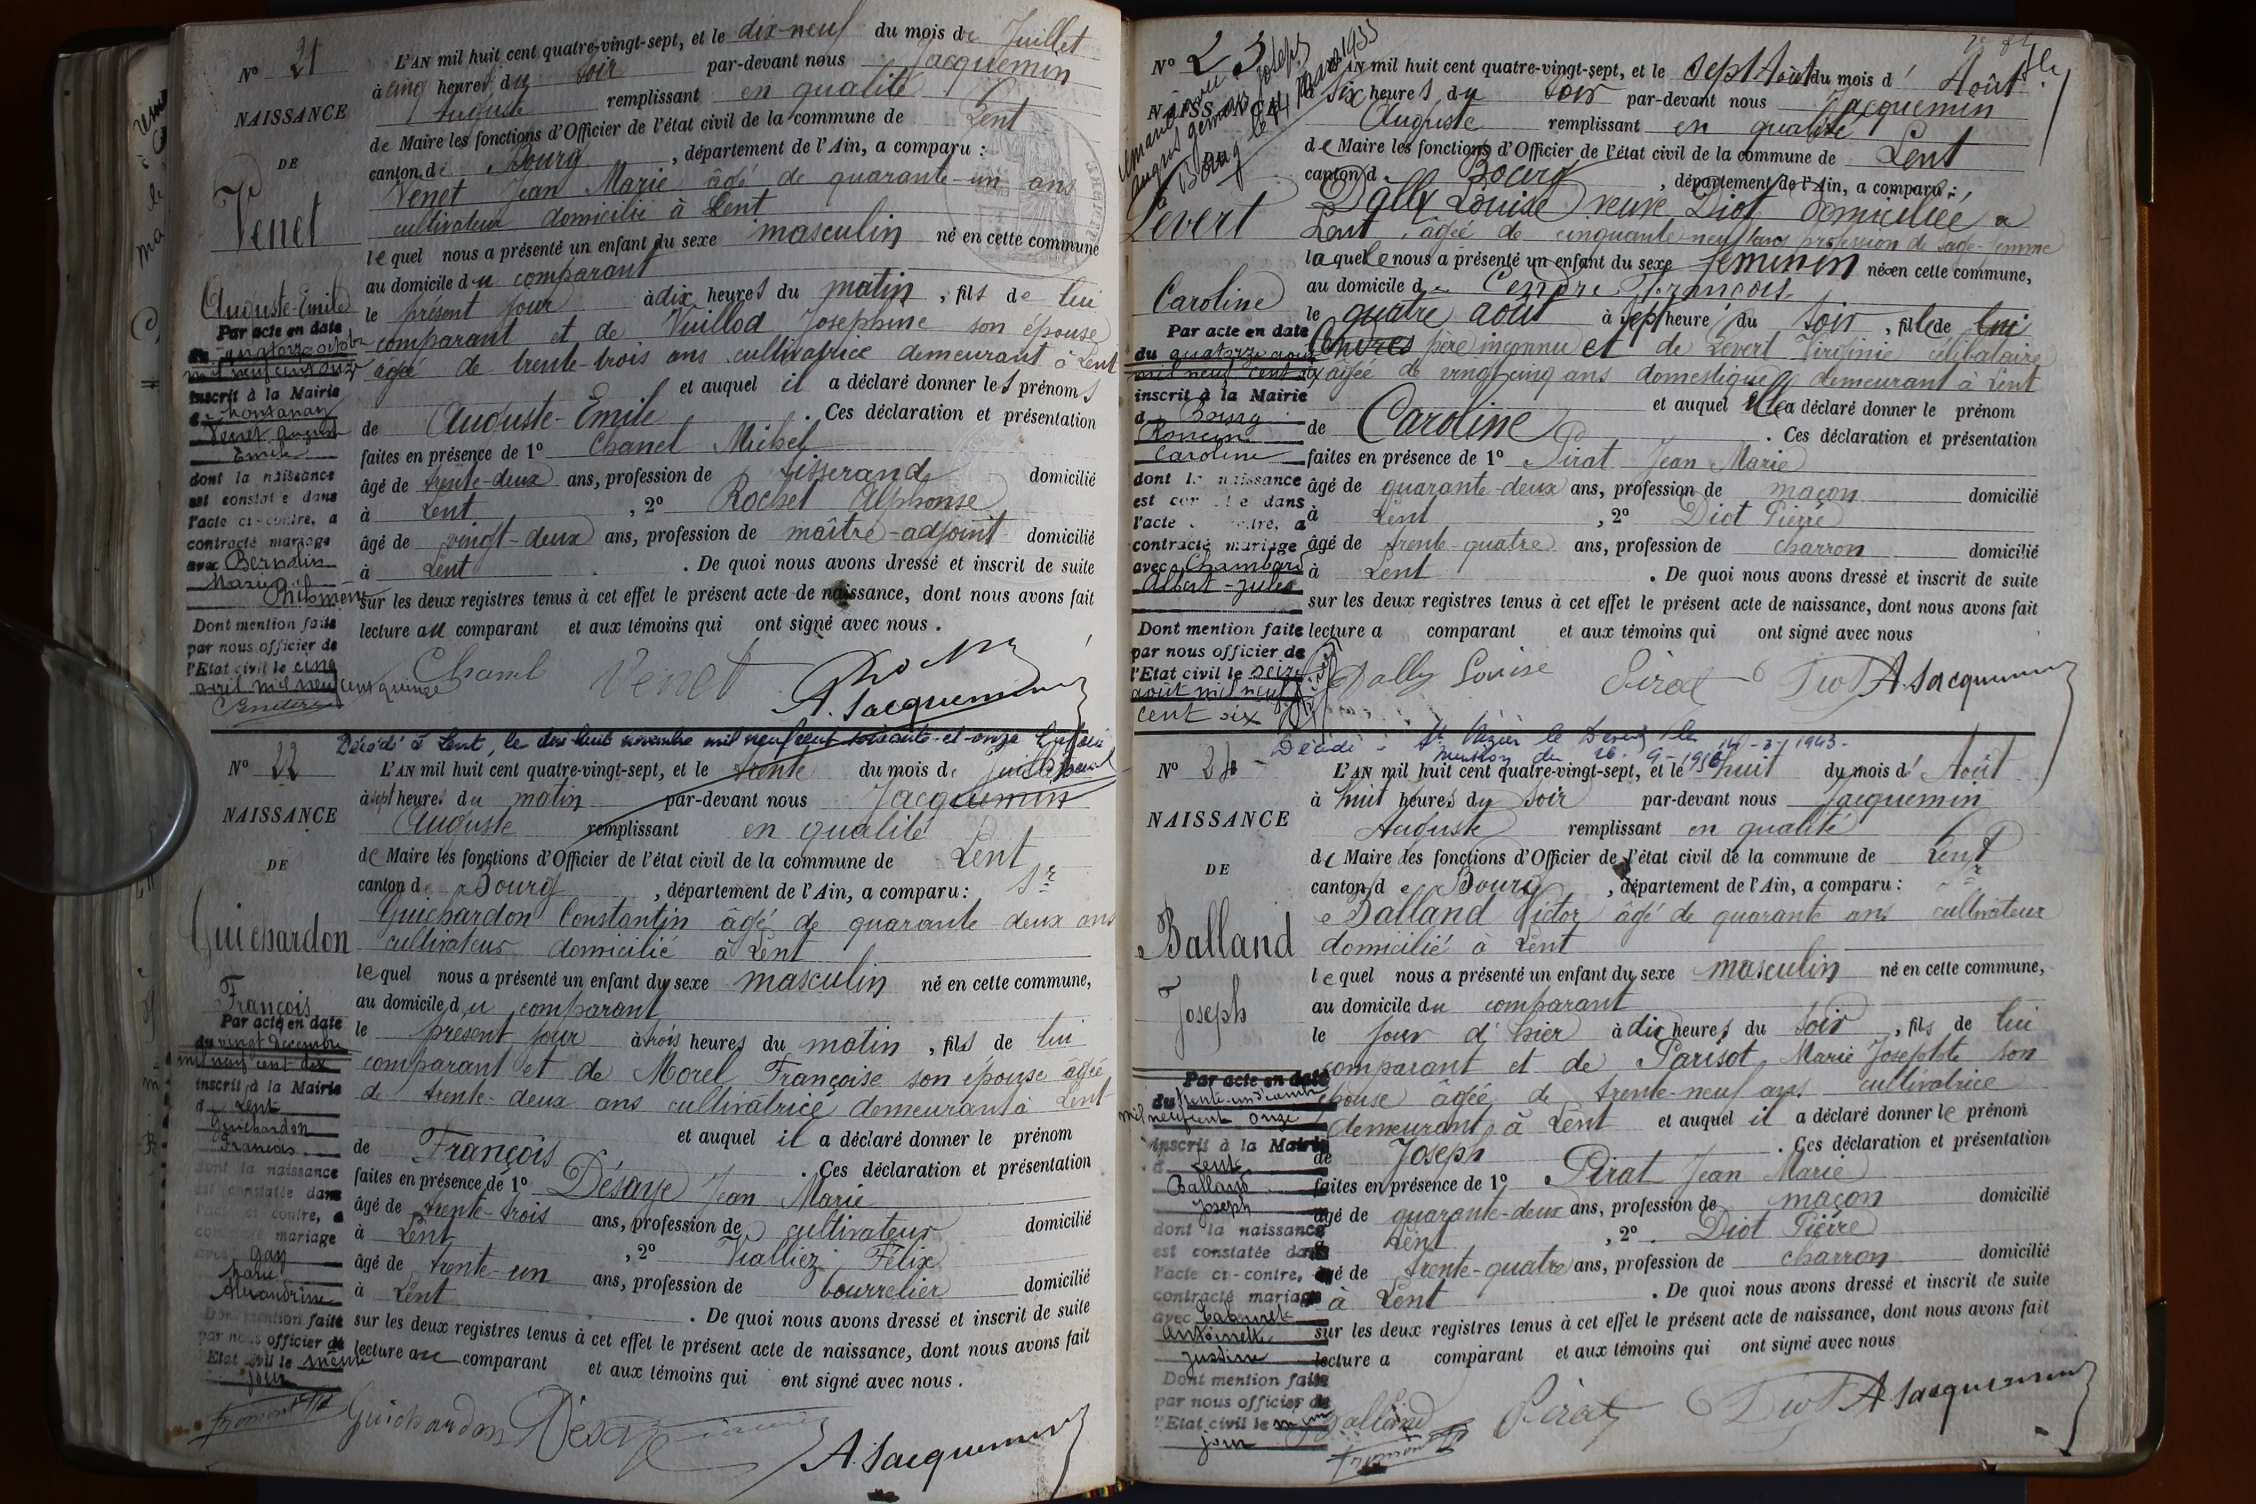 N° 21
NAISSANCE
DE
Venet
Auguste-Emile
Par acte en date
du quatorze octobre
mil neuf cent onze
inscrit à la Mairie
Venet Auguste
Emile
dont la naissance
est constatée dans
l'acte ci-contre, a
contracté mariage
avec Bernolin
Maria
Philomène
Dont mention faite
par nous officier de
l'Etat civil le cinq
avril mil neuf cent quinze
L'AN mil huit cent quatre-vingt-sept, et le dix-neuf du mois de Juillet
à cinq heures du soir par-devant nous Jacquemin
Auguste remplissant en qualité
de Maire les fonctions d'Officier de l'état civil de la commune de Lent
canton de Bourg, département de l'Ain, a comparu :
Venet Jean Marie âgé de quarante-un ans
cultivateur domicilié à Lent
lequel nous a présenté un enfant du sexe masculin né en cette commune
au domicile du comparant
le présent jour à dix heures du matin, fils de lui
comparant et de Vuillod Josephine son épouse
âgée de trente-trois ans cultivatrice demeurant à Lent
et auquel il a déclaré donner les prénoms
de Auguste-Emile. Ces déclaration et présentation
faites en présence de 1° Chanel Michel
âgé de trente-deux ans, profession de tisserand domicilié
à Lent, 2° Rochet Alphonse
âgé de vingt-deux ans, profession de maître-adjoint domicilié
à Lent. De quoi nous avons dressé et inscrit de suite
sur les deux registres tenus à cet effet le présent acte de naissance, dont nous avons fait
lecture au comparant et aux témoins qui ont signé avec nous.
Chanel Venet
A. Jacquemin
Décédé à Lent, le dix-huit novembre mil neuf cent soixante-et-onze
N° 22
NAISSANCE
DE
Guichardon
François
Par acte en date
du vingt Décembre
mil neuf cent dix
inscrit à la Mairie
d Lent
Guichardon
Francois
dont la naissance
est constatée dans
l'acte ci-contre, a
contracté mariage
avec Gay
Marie
Alexandrine
Dont mention faite
par nous officier de
l'Etat civil le même
jour
L'AN mil huit cent quatre-vingt-sept, et le trente du mois de Juillet
à sept heures du matin par-devant nous Jacquemin
Auguste remplissant en qualité
de Maire les fonctions d'Officier de l'état civil de la commune de Lent
canton de Bourg, département de l'Ain, a comparu : Sr
Guichardon Constantin âgé de quarante deux ans
cultivateur domicilié à Lent
lequel nous a présenté un enfant du sexe masculin né en cette commune,
au domicile du comparant
le présent jour à trois heures du matin, fils de lui
comparant et de Morel Françoise son épouse âgée
de trente-deux ans cultivatrice demeurant à Lent
et auquel il a déclaré donner le prénom
de François. Ces déclaration et présentation
faites en présence de 1° Désaye Jean Marie
âgé de trente-trois ans, profession de cultivateur domicilié
à Lent, 2° Vialliez Félix
âgé de trente-un ans, profession de bourrelier domicilié
à Lent. De quoi nous avons dressé et inscrit de suite
sur les deux registres tenus à cet effet le présent acte de naissance, dont nous avons fait
lecture au comparant et aux témoins qui ont signé avec nous.
Guichardon A. Jacquemin
N° 23
NAISSANCE
Levert
Caroline
Par acte en date
du quatorze août
mil neuf cent six
inscrit à la Mairie
d Bourg
Caroline
dont la naissance
est constatée dans
l'acte ci-contre, a
contracté mariage
avec Chambard
Albert-Jules
Dont mention faite
par nous officier de
l'Etat civil le seize
août mil neuf
cent six
L'AN mil huit cent quatre-vingt-sept, et le sept Août du mois d' Août
à six heures du soir par-devant nous Jacquemin
Auguste remplissant en qualité
de Maire les fonctions d'Officier de l'état civil de la commune de Lent
canton d Bourg, département de l'Ain, a comparu :
Dally Louise veuve Diot domiciliée à
Lent, âgée de cinquante neuf ans profession de sage-femme
laquelle nous a présenté un enfant du sexe féminin née en cette commune,
au domicile de Cendre François
le quatre août à sept heure du soir, fille de lui
père inconnu et de Levert Virginie célibataire
âgée de vingt-cinq ans domestique demeurant à Lent
et auquel elle a déclaré donner le prénom
de Caroline. Ces déclaration et présentation
faites en présence de 1° Pirat Jean Marie
âgé de quarante-deux ans, profession de maçon domicilié
à Lent, 2° Diot Pierre
âgé de trente-quatre ans, profession de charron domicilié
à Lent. De quoi nous avons dressé et inscrit de suite
sur les deux registres tenus à cet effet le présent acte de naissance, dont nous avons fait
lecture a comparant et aux témoins qui ont signé avec nous
Dally Louise Pirat Diot A. Jacquemin
N° 24
NAISSANCE
DE
Balland
Joseph
Par acte en date
du trente-un
mil neuf cent onze
inscrit à la Mairie
d Lent
Balland
Joseph
dont la naissance
est constatée dans
l'acte ci-contre, a
contracté mariage
avec
Antoinette
Justine
Dont mention faite
par nous officier de
l'Etat civil le même
jour
L'AN mil huit cent quatre-vingt-sept, et le huit du mois d' Août
à huit heures du soir par-devant nous Jacquemin
Auguste remplissant en qualité
de Maire les fonctions d'Officier de l'état civil de la commune de Lent
canton de Bourg, département de l'Ain, a comparu :
Balland Victor âgé de quarante ans cultivateur
domicilié à Lent
lequel nous a présenté un enfant du sexe masculin né en cette commune,
au domicile du comparant
le jour d'hier à dix heures du soir, fils de lui
comparant et de Parisot Marie Josephte son
épouse âgée de trente-neuf ans cultivatrice
demeurant à Lent et auquel il a déclaré donner le prénom
de Joseph. Ces déclaration et présentation
faites en présence de 1° Pirat Jean Marie
âgé de quarante-deux ans, profession de maçon domicilié
à Lent, 2° Diot Pierre
âgé de trente-quatre ans, profession de charron domicilié
à Lent. De quoi nous avons dressé et inscrit de suite
sur les deux registres tenus à cet effet le présent acte de naissance, dont nous avons fait
lecture a comparant et aux témoins qui ont signé avec nous
Balland Pirat Diot A. Jacquemin